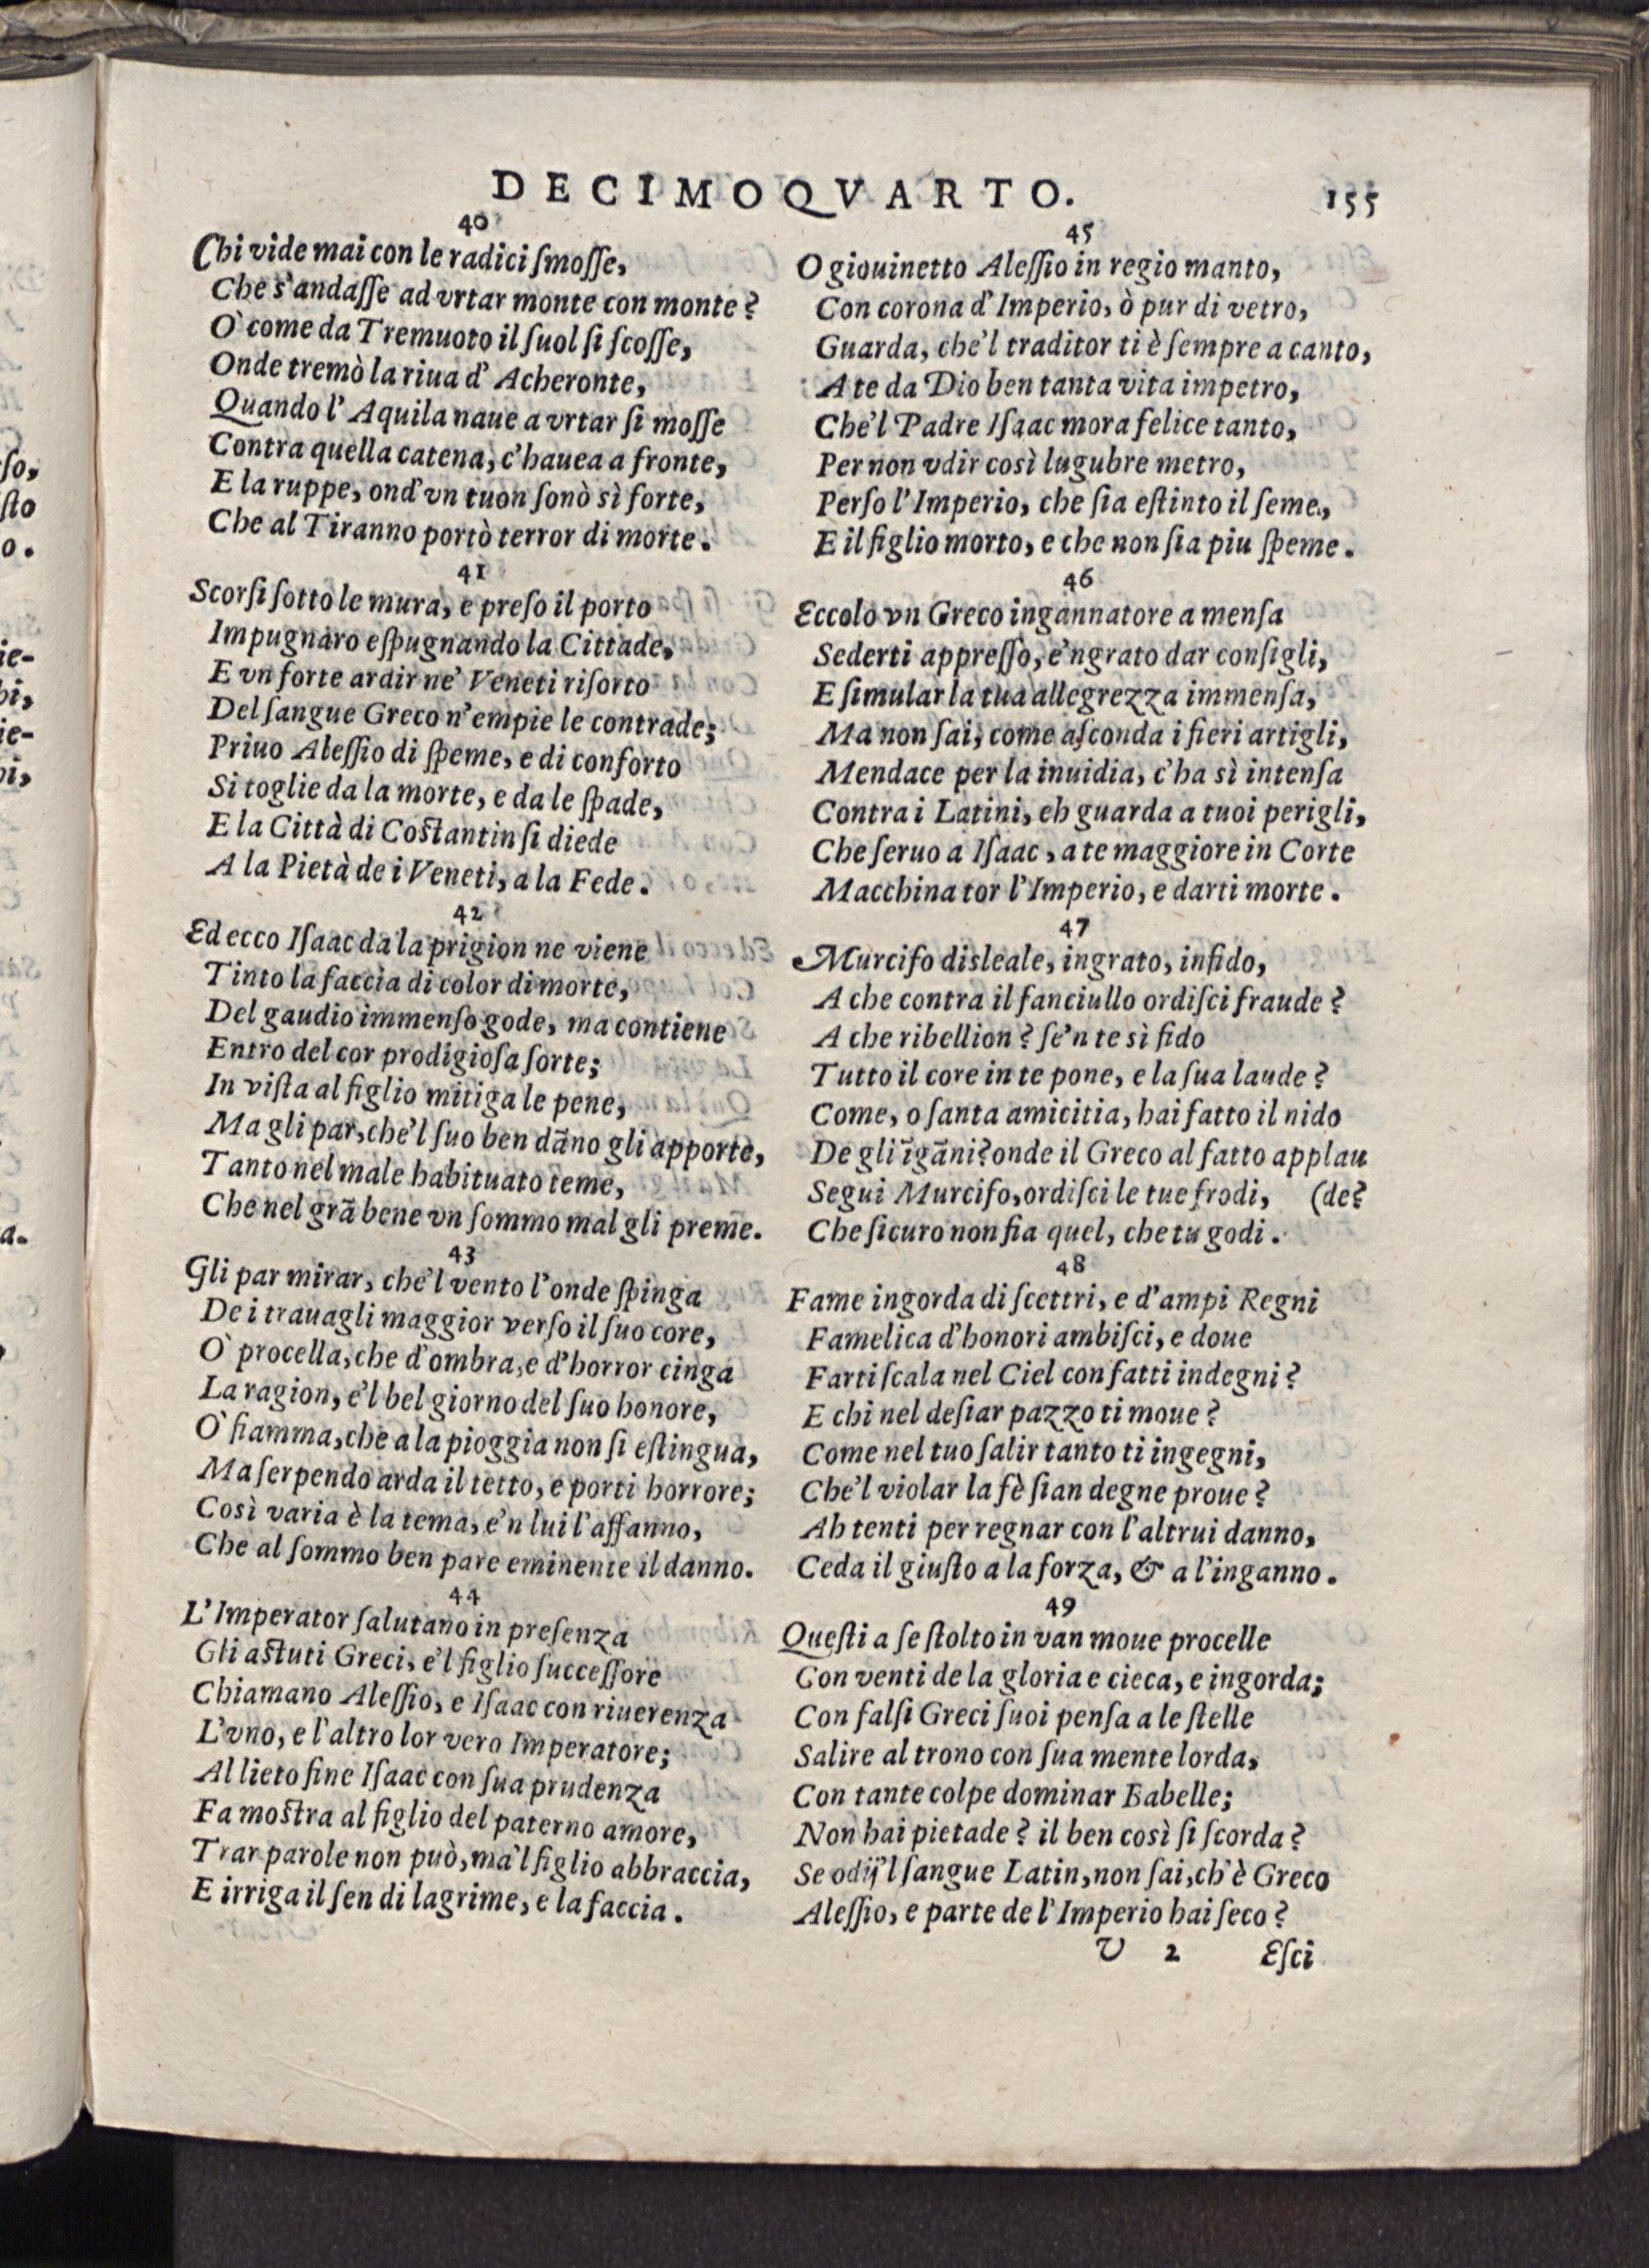 DECIMOQVARTO. 155
40
Chi vide mai con le radici ſmoſſe,
Che s'andaſſe ad vrtar monte con monte?
Ò come da Tremuoto il ſuol ſi ſcoſſe,
Onde tremò la riua d'Acheronte,
Quando l'Aquila naue a vrtar ſi moſſe
Contra quella catena, c'hauea a fronte,
E la ruppe, ond'vn tuon ſonò sì forte,
Che al Tiranno portò terror di morte.
41
Scorſi ſotto le mura, e preſo il porto
Impugnaro eſpugnando la Cittade,
E vn forte ardir ne' Veneti riſorto
Del ſangue Greco n'empie le contrade;
Priuo Aleſſio di ſpeme, e di conforto
Si toglie da la morte, e da le ſpade,
E la Città di Coſtantin ſi diede
A la Pietà de i Veneti, a la Fede.
42
Ed ecco Iſaac da la prigion ne viene
Tinto la faccia di color di morte,
Del gaudio immenſo gode, ma contiene
Entro del cor prodigioſa ſorte;
In viſta al figlio mitiga le pene,
Ma gli par, che'l ſuo ben dāno gli apporte,
Tanto nel male habituato teme,
Che nel grā bene vn ſommo mal gli preme.
43
Gli par mirar, che'l vento l'onde ſpinga
De i trauagli maggior verſo il ſuo core,
Ò procella, che d'ombra, e d'horror cinga
La ragion, e'l bel giorno del ſuo honore,
Ò fiamma, che a la pioggia non ſi eſtingua,
Ma ſerpendo arda il tetto, e porti horrore;
Così varia è la tema, e'n lui l'affanno,
Che al ſommo ben pare eminente il danno.
44
L'Imperator ſalutano in preſenza
Gli aſtuti Greci, e'l figlio ſucceſſore
Chiamano Aleſſio, e Iſaac con riuerenza
L'vno, e l'altro lor vero Imperatore;
Al lieto fine Iſaac con ſua prudenza
Fa moſtra al figlio del paterno amore,
Trar parole non può, ma'l figlio abbraccia,
E irriga il ſen di lagrime, e la faccia.
45
O giouinetto Aleſſio in regio manto,
Con corona d'Imperio, ò pur di vetro,
Guarda, che'l traditor ti è ſempre a canto,
A te da Dio ben tanta vita impetro,
Che'l Padre Iſaac mora felice tanto,
Per non vdir così lugubre metro,
Perſo l'Imperio, che ſia eſtinto il ſeme,
E il figlio morto, e che non ſia piu ſpeme.
46
Eccolo vn Greco ingannatore a menſa
Sederti appreſſo, e'ngrato dar conſigli,
E ſimular la tua allegrezza immenſa,
Ma non ſai, come aſconda i fieri artigli,
Mendace per la inuidia, c'ha sì intenſa
Contra i Latini, eh guarda a tuoi perigli,
Che ſeruo a Iſaac, a te maggiore in Corte
Macchina tor l'Imperio, e darti morte.
47
Murcifo disleale, ingrato, infido,
A che contra il fanciullo ordiſci fraude?
A che ribellion? ſe'n te sì fido
Tutto il core in te pone, e la ſua laude?
Come, o ſanta amicitia, hai fatto il nido
De gli īgāni? onde il Greco al fatto applau
Segui Murcifo, ordiſci le tue frodi, (de?
Che ſicuro non fia quel, che tu godi.
48
Fame ingorda di ſcettri, e d'ampi Regni
Famelica d'honori ambiſci, e doue
Farti ſcala nel Ciel con fatti indegni?
E chi nel deſiar pazzo ti moue?
Come nel tuo ſalir tanto ti ingegni,
Che'l violar la fè ſian degne proue?
Ah tenti per regnar con l'altrui danno,
Ceda il giuſto a la forza, & a l'inganno.
49
Queſti a ſe ſtolto in van moue procelle
Con venti de la gloria e cieca, e ingorda;
Con falſi Greci ſuoi penſa a le ſtelle
Salire al trono con ſua mente lorda,
Con tante colpe dominar Babelle;
Non hai pietade? il ben così ſi ſcorda?
Se odij'l ſangue Latin, non ſai, ch'è Greco
Aleſſio, e parte de l'Imperio hai ſeco?
V 2 Eſci